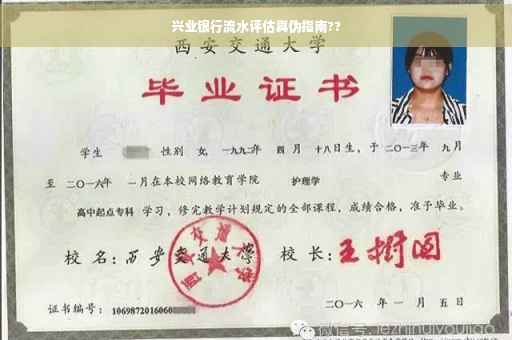 兴业银行流水评估真伪指南??
西安交通大学
毕业证书
学生 性别 女，一九九二年 四 月 十八日生，于 二〇一三年 九月
至 二〇一六年 一月在本校网络教育学院 护理学 专业
高中起点专科 学习，修完教学计划规定的全部课程，成绩合格，准予毕业。
校 名：西安交通大学 校 长：王树国
西安交通大学
证书编号：1069872016060
二〇一六 年 一 月 五 日
微信号: jiezhihuiyoujiao